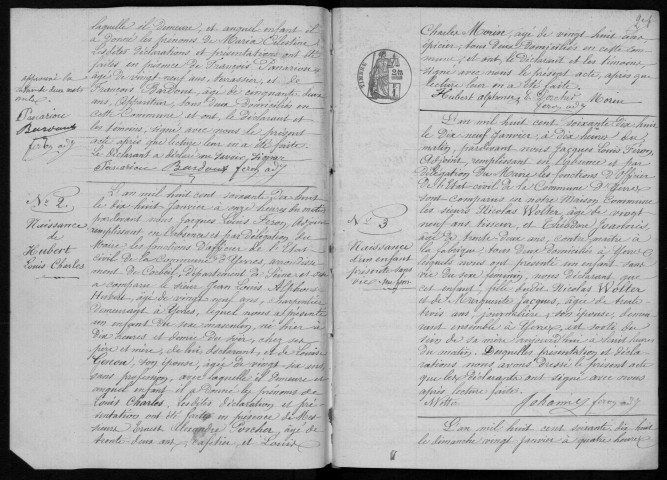 laquelle il demeure, et auquel enfant il
a donné les prénoms de Maria Celestine
Lesdites déclarations et présentations ont été
faites en présence de François
âgé de vingt-neuf ans, terrassier, et de
François Bardout, âgé de cinquante deux
ans, tous deux Domiciliés en
cette Commune et ont, le Déclarant et
les témoins, signé avec nous le présent
acte après que lecture leur en a été faite.
Le Déclarant a déclaré ne savoir signer
Bardout feron adj
approuvé la
de deux mots
nuls
Bardout
feron adj
No 2.
Naissance
de
Hubert
Louis Charles
L'an mil huit cent soixante dix huit
le dix huit Janvier à heures du
par devant nous Jacques Louis Feron Adjoint
remplissant en l'absence et par Délégation du
Maire les fonctions d'officier de l'Etat
civil de la Commune d'Yerres, arrondisse
ment de Corbeil, Département de Seine et Oise
a comparu le sieur Jean Louis Alphonse
Hubert, âgé de vingt neuf ans, charpentier
demeurant à Yerres, lequel nous a présenté
un enfant du sexe masculin, né hier à
dix heures et demie du soir, chez ses
père et mère, de lui déclarant, et de Louise
son épouse, âgée de vingt six ans
sans profession, avec laquelle il demeure et
auquel enfant il a donné les prénoms de
Louis Charles. Lesdites déclaration et pré
sentation ont été faites en présence de Mes
sieurs Ernest Alexandre Porcher, âgé de
trente deux ans, et Louis
Charles Morin, âgé de vingt huit ans
épicier, tous deux Domiciliés en cette com
mune, et ont, le Déclarant et les témoins,
signé avec nous le présent acte, après que
lecture leur en a été faite.
Hubert alphonse E Porcher Morin
feron adj
TIMBRE
No 3
Naissance
d'un enfant
présenté sans
vie
L'an mil huit cent soixante dix huit
le Dix neuf Janvier, à dix heures du
matin, pardevant nous Jacques Louis Feron
Adjoint, remplissant en l'absence et par
délégation du Maire les fonctions d'Officier
de l'Etat civil de la Commune d'Yerres
sont comparus en notre Maison Commune
les sieurs Nicolas Wolter, âgé de vingt
neuf ans, tisseur et Theodor
âgé de trente deux ans, contre-maître à
la fabrique, tous deux Domiciliés à Yerres
lesquels nous ont présenté un enfant sans
vie du sexe féminin, nous déclarant que
cet enfant, fille dudit Nicolas Wolter
et de Marguerite Jacques, âgée de trente
trois ans, journalière, son épouse, demeu
rant ensemble à Yerres, est sorti du
sein de sa mère aujourd'hui à huit heures
du matin. Desquelles présentation et décla
rations nous avons dressé le présent acte
que les Déclarants ont signé avec nous
après lecture faite.
Wolter Johanny feron adj
L'an mil huit cent soixante dix huit
le dimanche vingt janvier à quatre heures